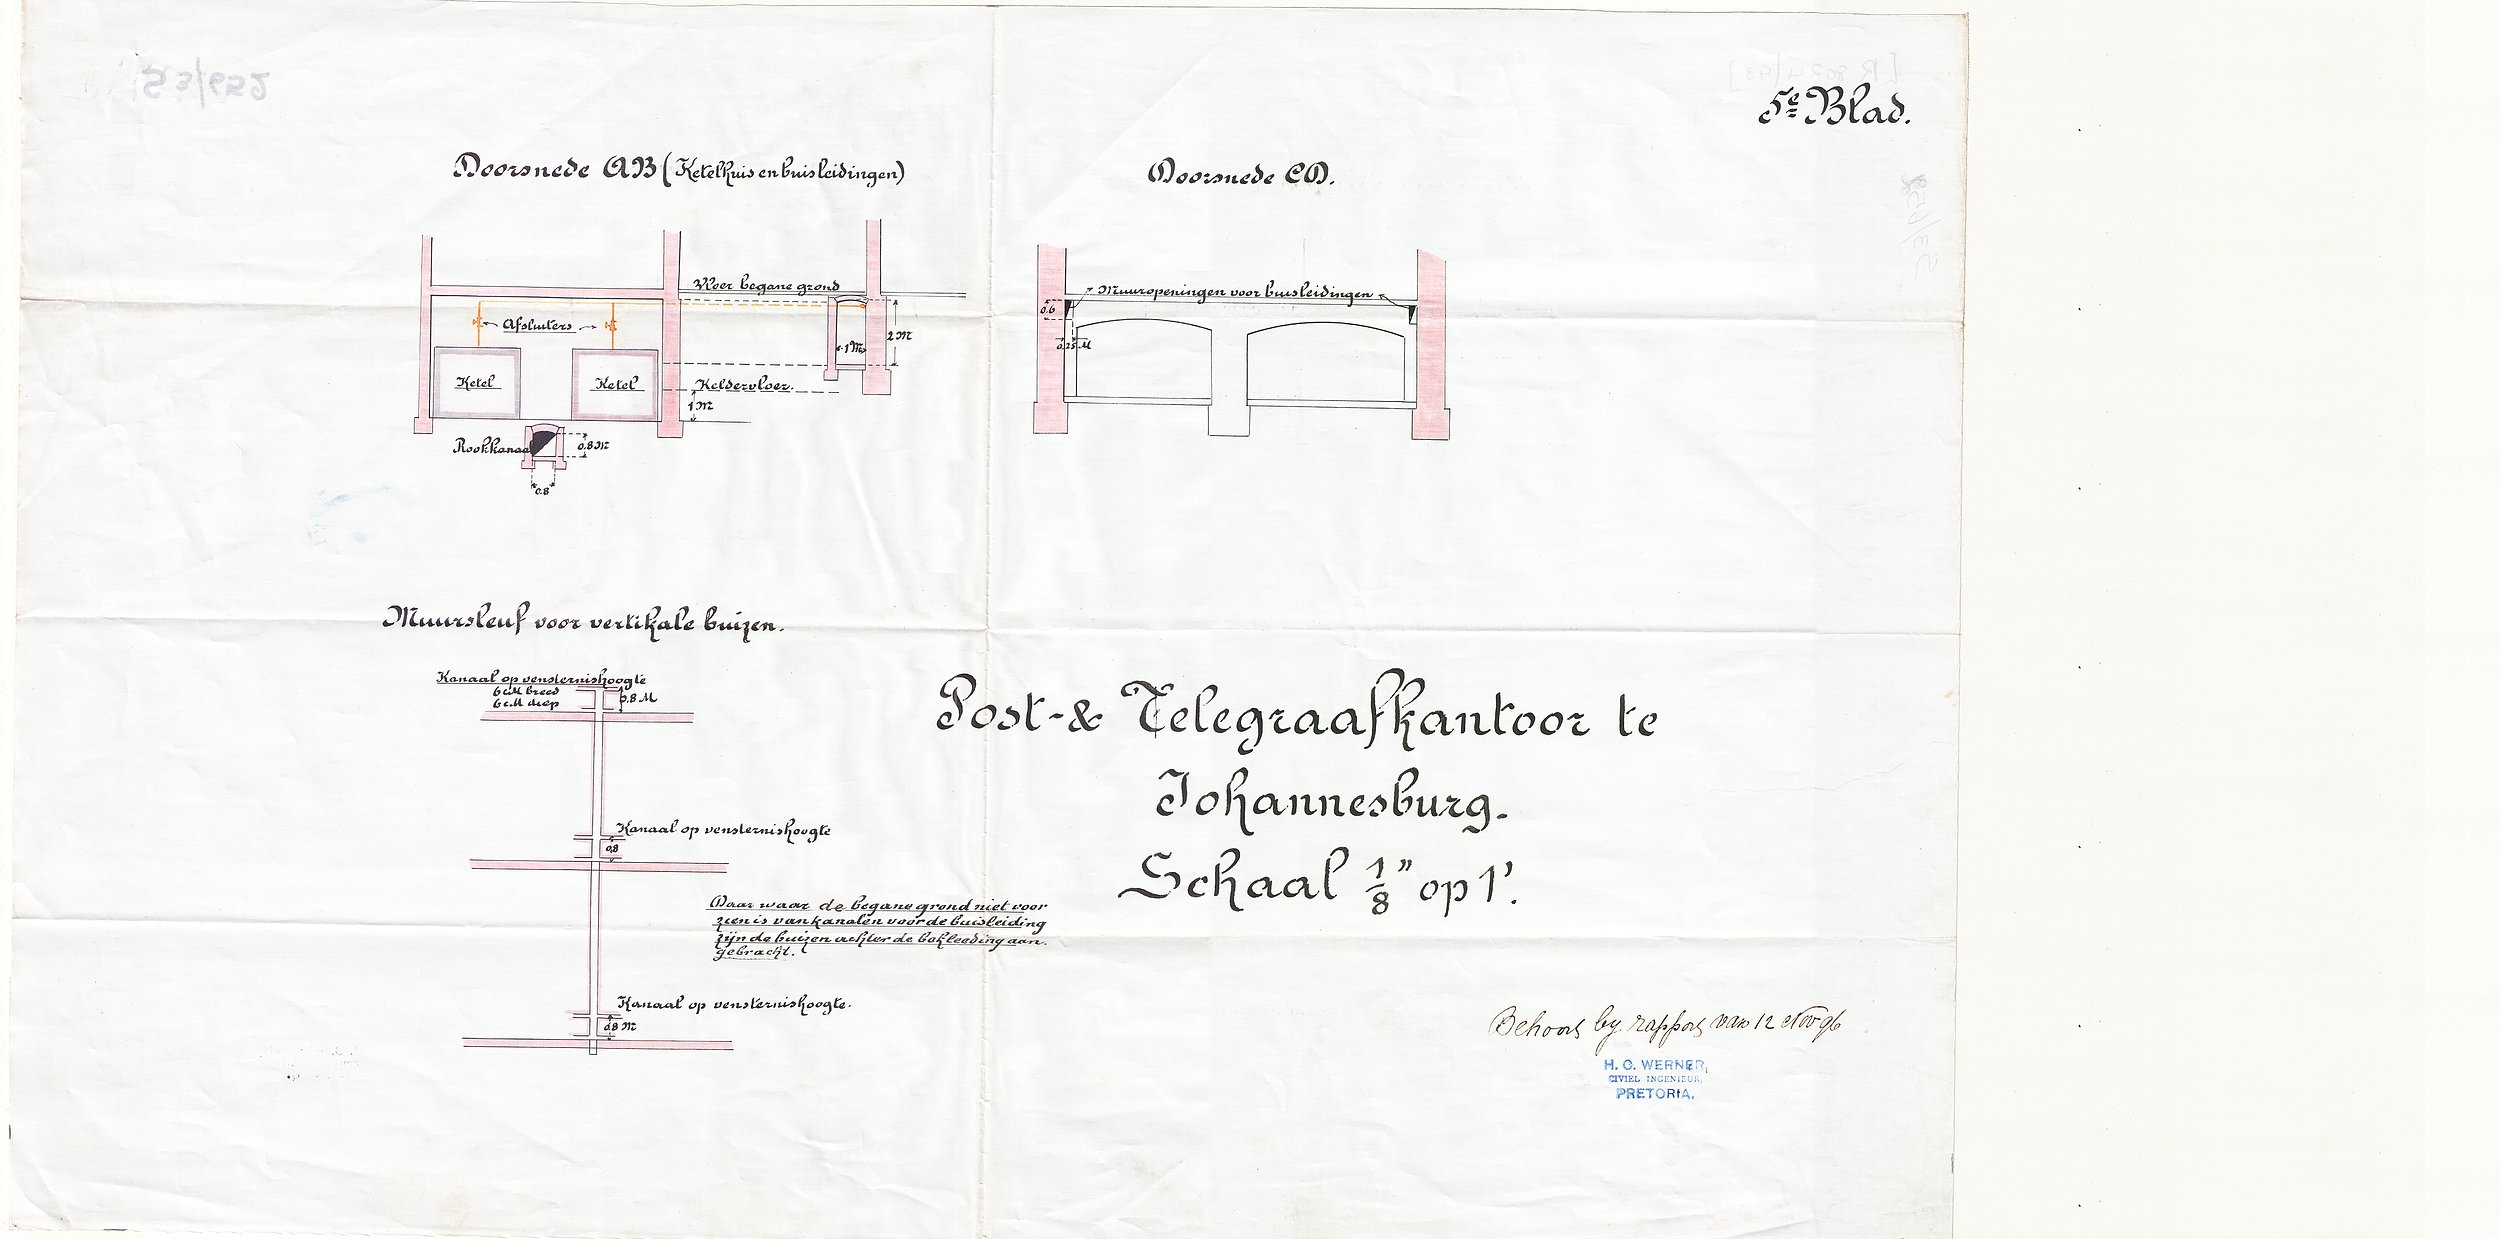 5e Blad.
Doorsnede AB (Ketelhuis en buisleidingen)
Vloer begane grond
Afsluiters
1 M
2 M
Ketel
Ketel
Keldervloer.
1 M
Rookkanaal
0.8 M
0.8
Doorsnede CD.
Muuropeningen voor buisleidingen
0.6
0.25 M
Muursleuf voor vertikale buizen.
Kanaal op vensternishoogte
6 cM breed
6 cM diep
0.8 M
Kanaal op vensternishoogte
0.8
Daar waar de begane grond niet voor
zien is van kanalen voor de buisleiding
zijn de buizen achter de bekleeding aan.
gebracht.
Kanaal op vensternishoogte.
0.8 M
Post- & Telegraafkantoor te
Johannesburg.
Schaal 1/8" op 1'.
Behoort by rapport van 12 Nov 96
H. C. WERNER,
CIVIEL INGENIEUR,
PRETORIA.